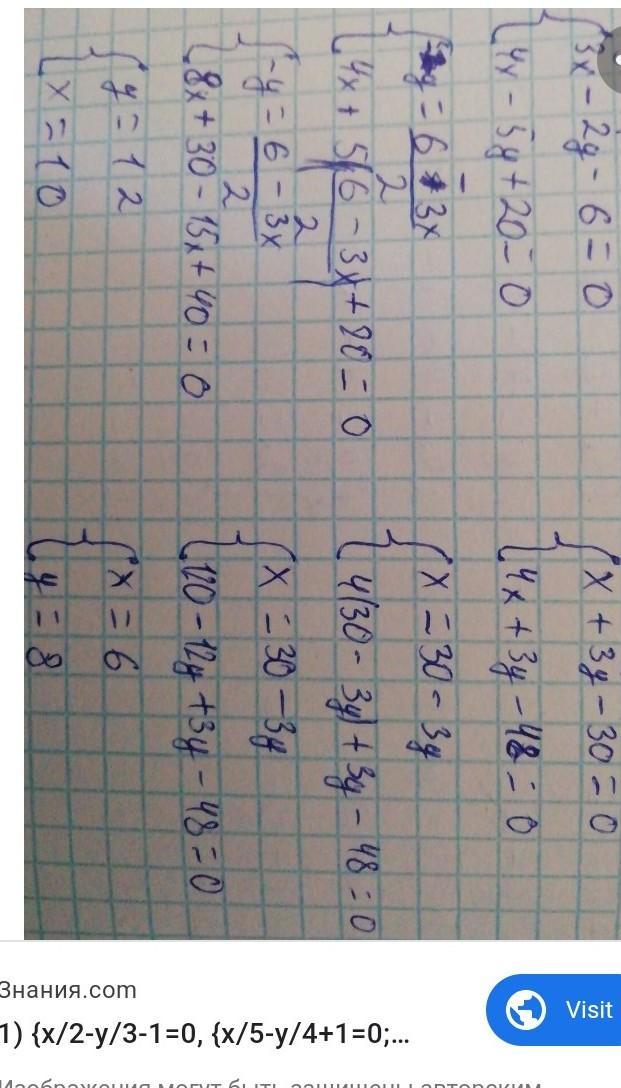 {3x - 2y - 6 = 0
{4x - 5y + 20 = 0
{-y = 6 - 3x / 2
{4x + 5(6 - 3x / 2) + 20 = 0
{-y = 6 - 3x / 2
{8x + 30 - 15x + 40 = 0
{y = 12
{x = 10
{x + 3y - 30 = 0
{4x + 3y - 48 = 0
{x = 30 - 3y
{4(30 - 3y) + 3y - 48 = 0
{x = 30 - 3y
{120 - 12y + 3y - 48 = 0
{x = 6
{y = 8
Знания.com
Visit
1) {x/2-y/3-1=0, {x/5-y/4+1=0;...
Изображения могут быть защищены авторским